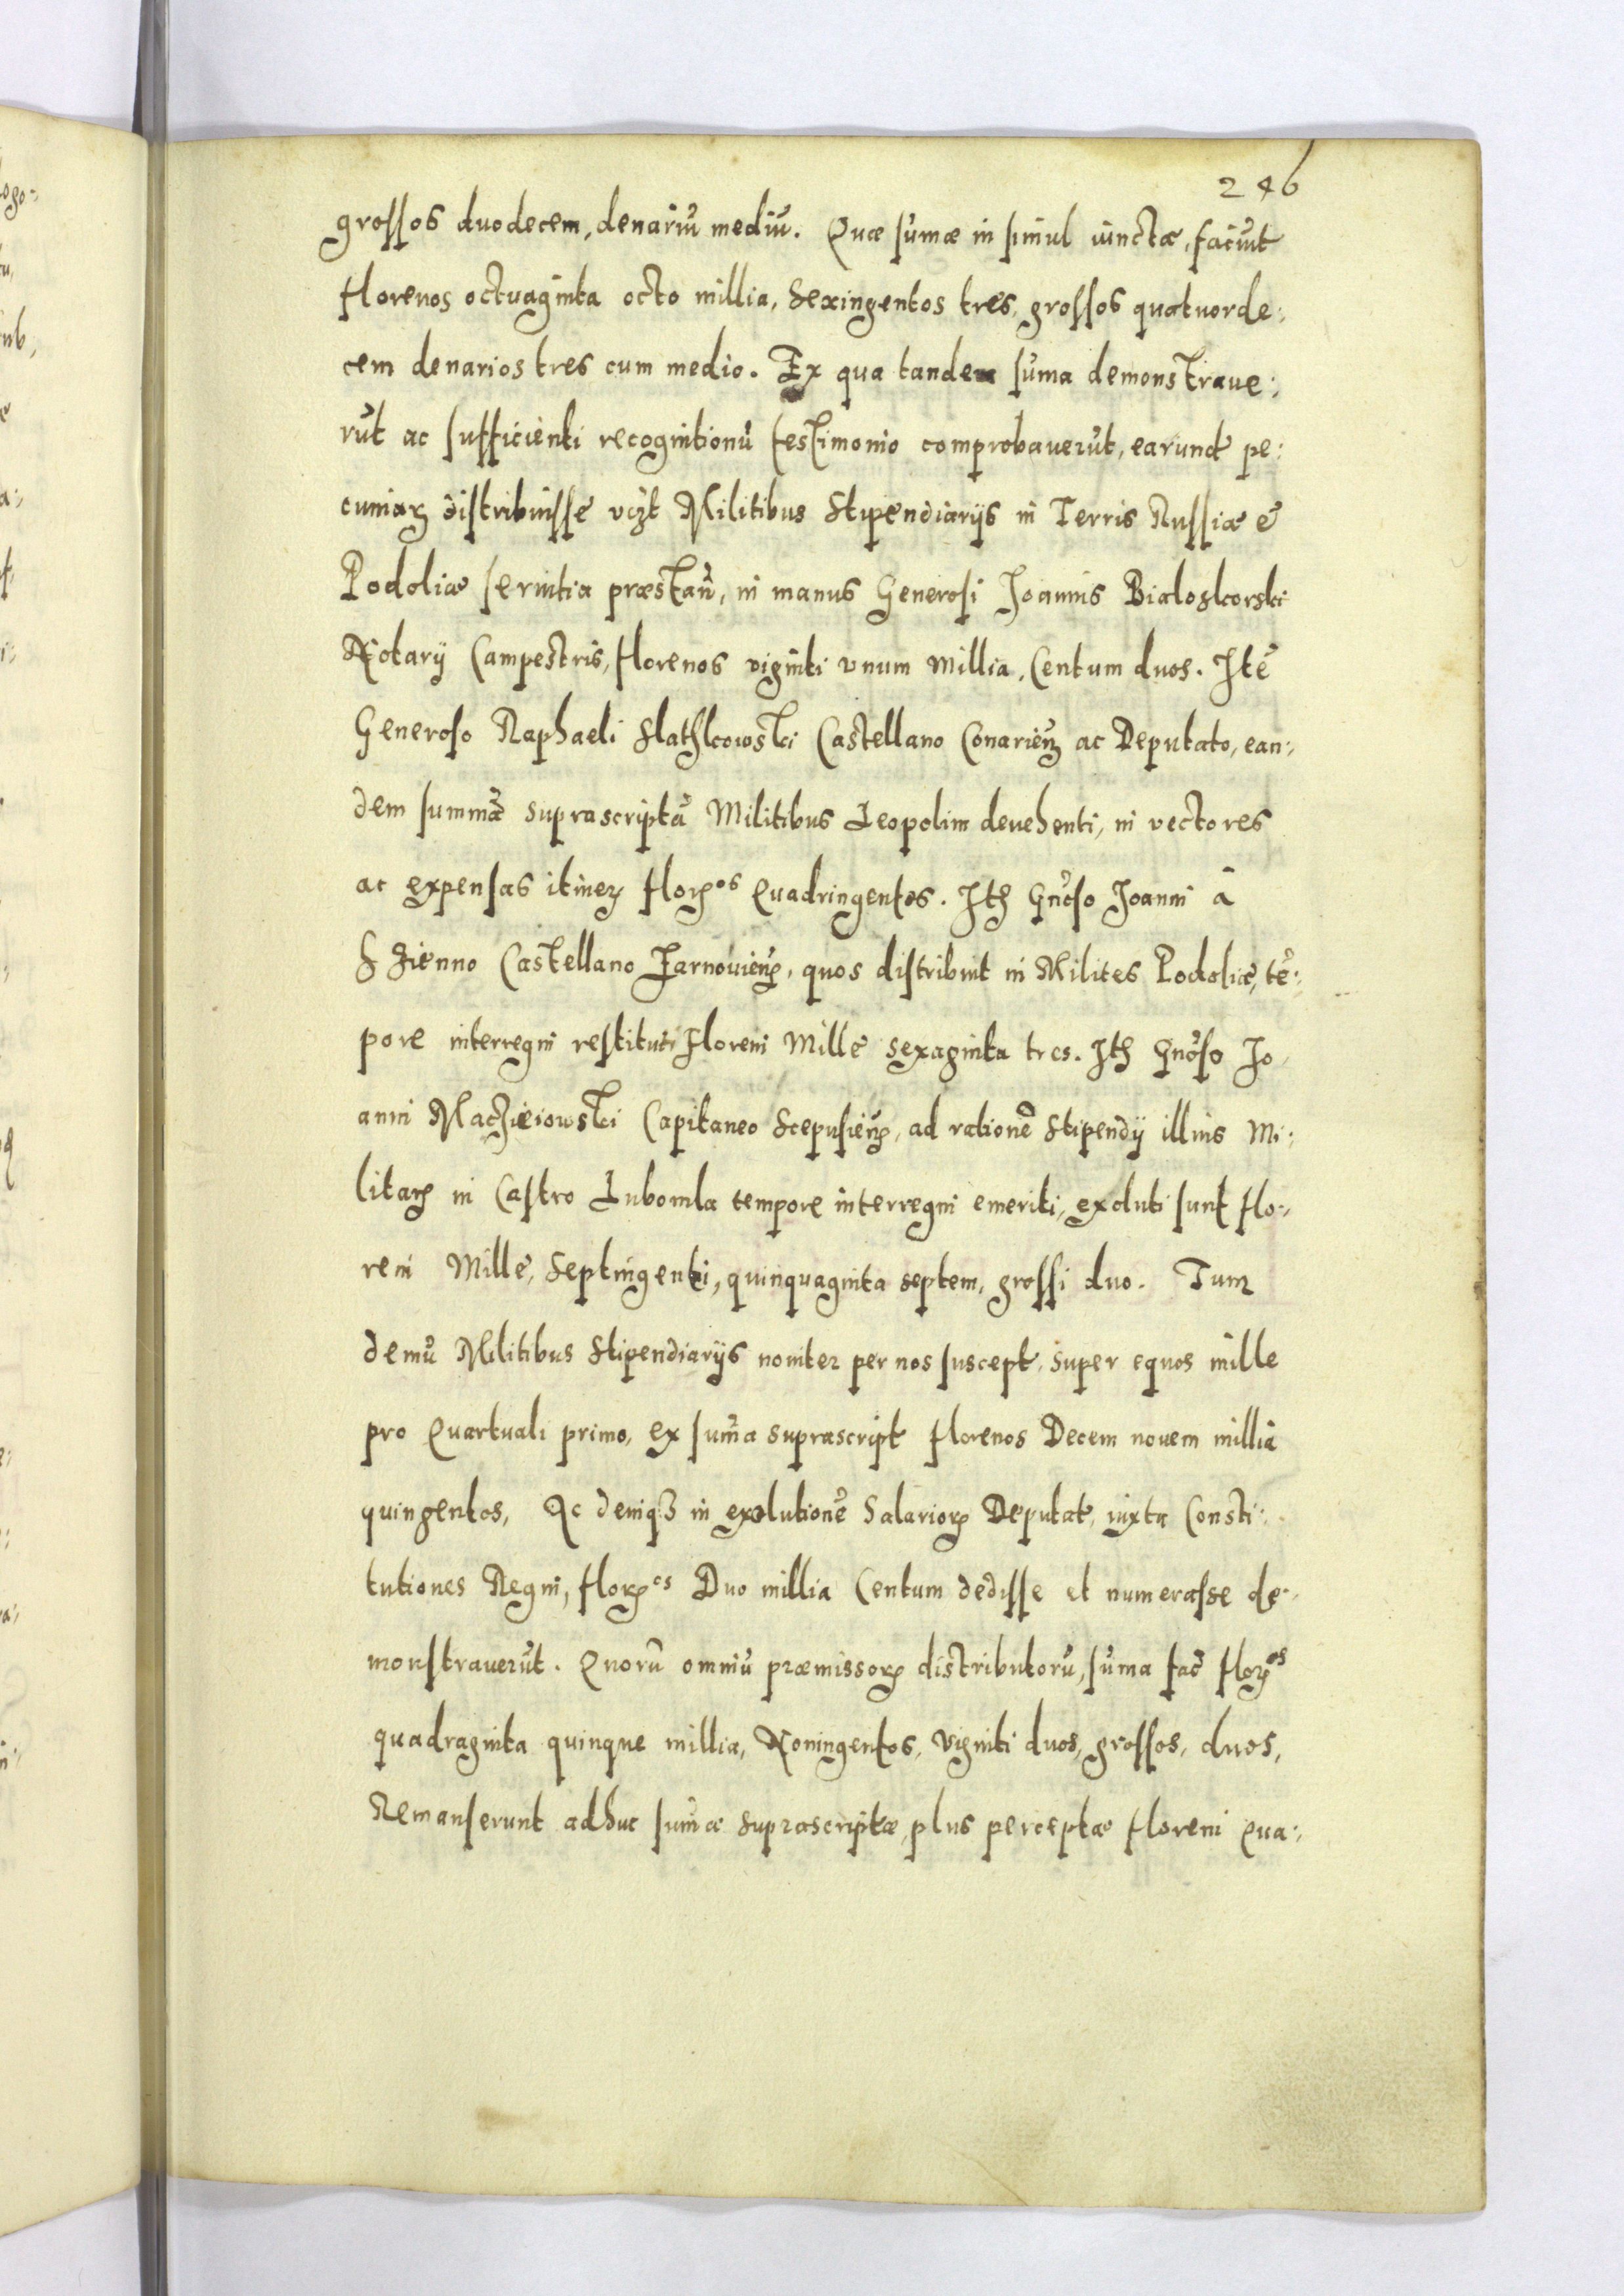 246
grossos duodecem, denariũ mediũ. Quæ sum̃æ in simul iunctæ, faciũt
florenos octuaginta octo millia, Sexingentos tres, grossos quatuorde:
cem denarios tres cum medio. Ex qua tandem sum̃a demonstraue:
rũt ac sufficienti recognitionũ testimonio comprobauerũt, earund pe:
cuniaꝝ distribuisse vcꝫt Militibus Stipendiarijs in Terris Russiæ e
Podoliæ seruitia præstañ, in manus Generosi Joannis Bialoskorski
Notarij Campestris, florenos viginti vnum Millia, Centum duos. Itẽ
Generoso Raphaeli Slathkowski Castellano Conarieñ ac Deputato, ean:
dem summã suprascriptã Militibus Leopolim deuehenti, in vectores
ac expensas itineꝝ floꝝos Quadringentos. Itꝫ Gñoso Joanni â
Szienno Castellano Zarnouieñ, quos distribuit in Milites Podoliæ, tẽ:
pore interregni restituti Floreni Mille sexaginta tres. Itꝫ Gñoso Jo
anni Maczieiowski Capitaneo Scepusieñ, ad rationẽ Stipendij illius Mi:
litaꝝ in Castro Lubomla tempore interregni emeriti, exoluti sunt flo:
reni Mille, Septingenti, quinquaginta septem, grossi duo. Tum
demũ Militibus Stipendiarijs nouiter per nos suscept, super equos mille
pro Quartuali primo, ex sum̃a suprascript florenos Decem nouem millia
quingentos, Ac deniqꝫ in exolutionẽ Salarioꝝ Deputat, iuxta Consti:
tutiones Regni, floꝝos Duo millia Centum dedisse et numerasse de:
monstrauerũt. Quorũ omniũ præmissoꝝ distributorũ, sũma fac̃ floꝝos
quadraginta quinque millia, Noningentos, viginti duos, grossos, duos,
Remanserunt adhuc sum̃æ suprascriptæ, plus perceptæ floreni Qua: